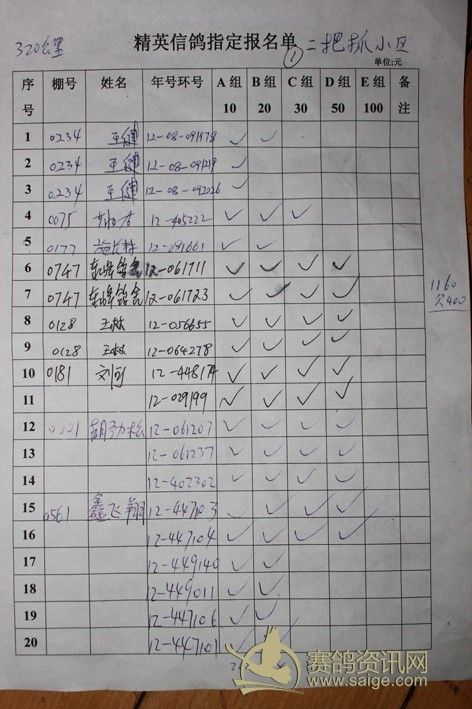 320公里 精英信鸽指定报名单 ① 二把抓小区
单位:元
序号 棚号 姓名 年号环号 A组 10 B组 20 C组 30 D组 50 E组 100 备注
1 0234 王健 12-08-091978 ✓ ✓
2 0234 王健 12-08-091219 ✓
3 0234 王健 12-08-092026 ✓
4 0075 12-405222 ✓ ✓ ✓
5 0177 12-081661 ✓ ✓
6 0747 12-061711 ✓ ✓ ✓ ✓
7 0747 12-061723 ✓ ✓ ✓ ✓
1160
欠400
8 0128 王林 12-056655 ✓ ✓ ✓ ✓
9 0128 王林 12-064278 ✓ ✓ ✓ ✓
10 0181 刘 12-448174 ✓ ✓ ✓ ✓
11 12-029199 ✓ ✓ ✓ ✓
12 胡劲松 12-061207 ✓ ✓ ✓ ✓
13 12-061237 ✓ ✓ ✓ ✓
14 12-402302 ✓ ✓ ✓ ✓
15 0561 鑫飞翔 12-447103 ✓ ✓ ✓ ✓
16 12-447104 ✓ ✓ ✓ ✓
17 12-449140 ✓ ✓
18 12-449011 ✓ ✓
19 12-447106 ✓ ✓
20 12-447101 ✓ ✓
赛鸽资讯网
www.saige.com